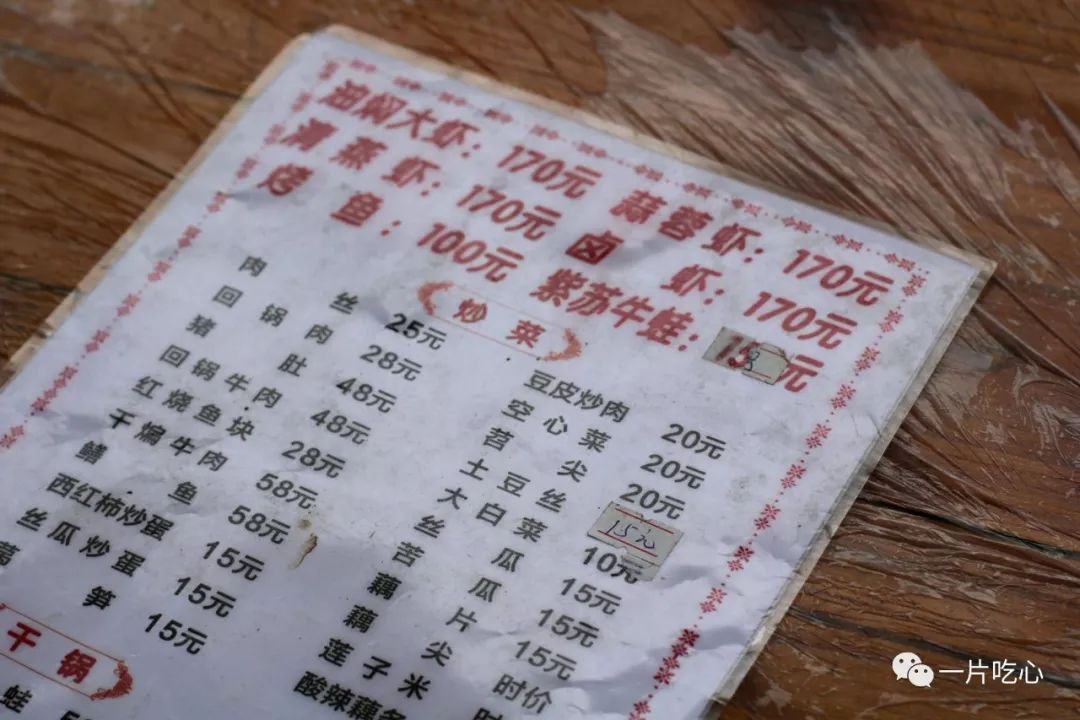 油焖大虾：170元 蒜蓉虾：170元
清蒸虾：170元 卤虾：170元
烤鱼：100元 紫苏牛蛙：元
炒菜
肉丝 25元
回锅肉 28元
猪肚 48元
回锅牛肉 48元
红烧鱼块 28元
干煸牛肉 58元
鳝鱼 58元
西红柿炒蛋 15元
丝瓜炒蛋 15元
笋 15元
豆皮炒肉 20元
空心菜 20元
苕尖 20元
土豆丝 15元
大白菜 10元
丝瓜 15元
苦瓜 15元
藕片 15元
藕尖 时价
莲子米 时
酸辣藕
干锅
蛙
一片吃心